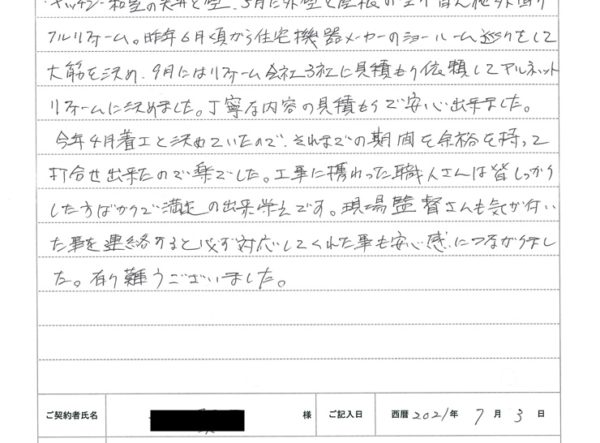 キッチン・和室の天井と壁、5月に外壁と屋根の
フルリフォーム。昨年6月頃から住宅機器メーカーのショールーム巡りをして
大筋を決め、9月にはリフォーム会社3社に見積もり依頼してアルネット
リフォームに決めました。丁寧な内容の見積もりで安心出来ました。
今年4月着工と決めていたので、それまでの期間を余裕を持って
打合せ出来たので楽でした。工事に携わった職人さんは皆しっかり
した方ばかりで満足の出来栄えです。現場監督さんも気が付い
た事を連絡すると必ず対応してくれた事も安心感につながりまし
た。有り難うございました。
ご契約者氏名 様 ご記入日 西暦 2021年 7月 3日